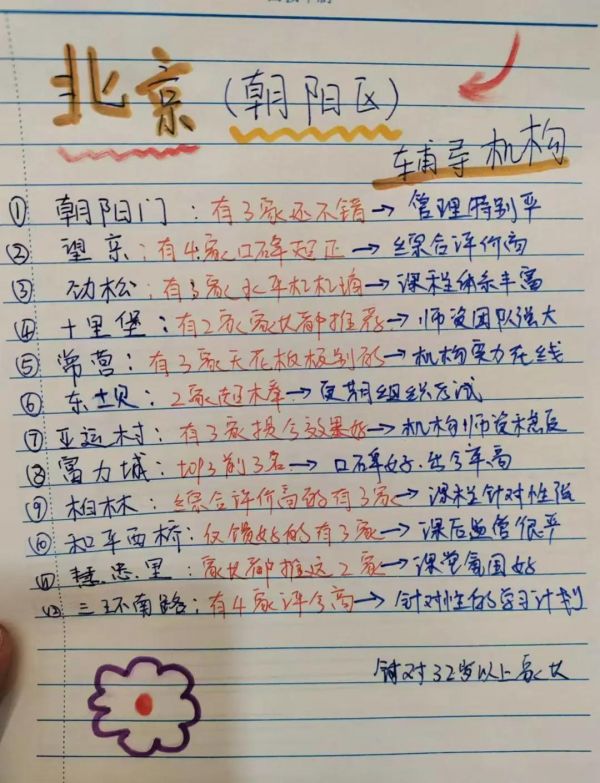 北京(朝阳区)
辅导机构
① 朝阳门：有3家还不错→管理特别严
② 望京：有4家口碑超正→综合评价高
③ 劲松：有3家水平杠杠滴→课程体系丰富
④ 十里堡：有2家家长都推荐→师资团队强大
⑤ 常营：有3家天花板级别的→机构实力在线
⑥ 东坝：2家超棒→定期组织考试
⑦ 亚运村：有3家提分效果好→机构师资稳定
⑧ 富力城：top3前3名→口碑好.出分率高
⑨ 柏林：综合评价高的有3家→课程针对性强
⑩ 和平西桥：反馈好的有3家→课后监督很严
⑪ 慧忠里：家长都推这2家→课堂氛围好
⑫ 三环南路：有4家评分高→针对性的学习计划
针对32岁以上家长